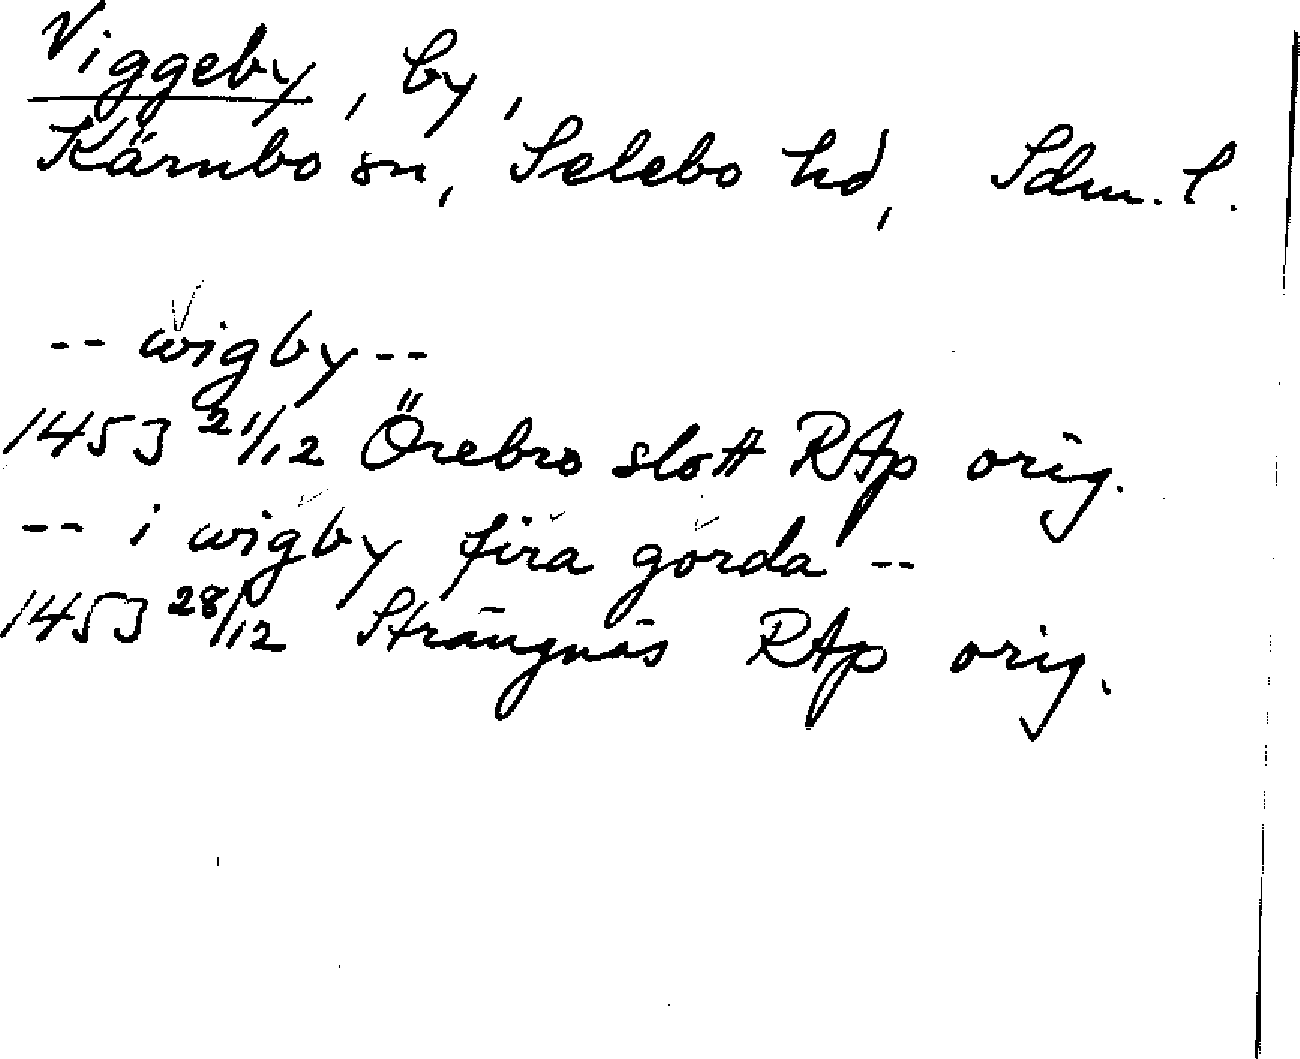 Viggeby, by,
Kärnbo sn, Selebo hd, Sdm. l.
-- wigby --
1453 21/12 Örebro slott RAp orig.
-- i wigby fira gorda --
1453 28/12 Strängnäs RAp orig.